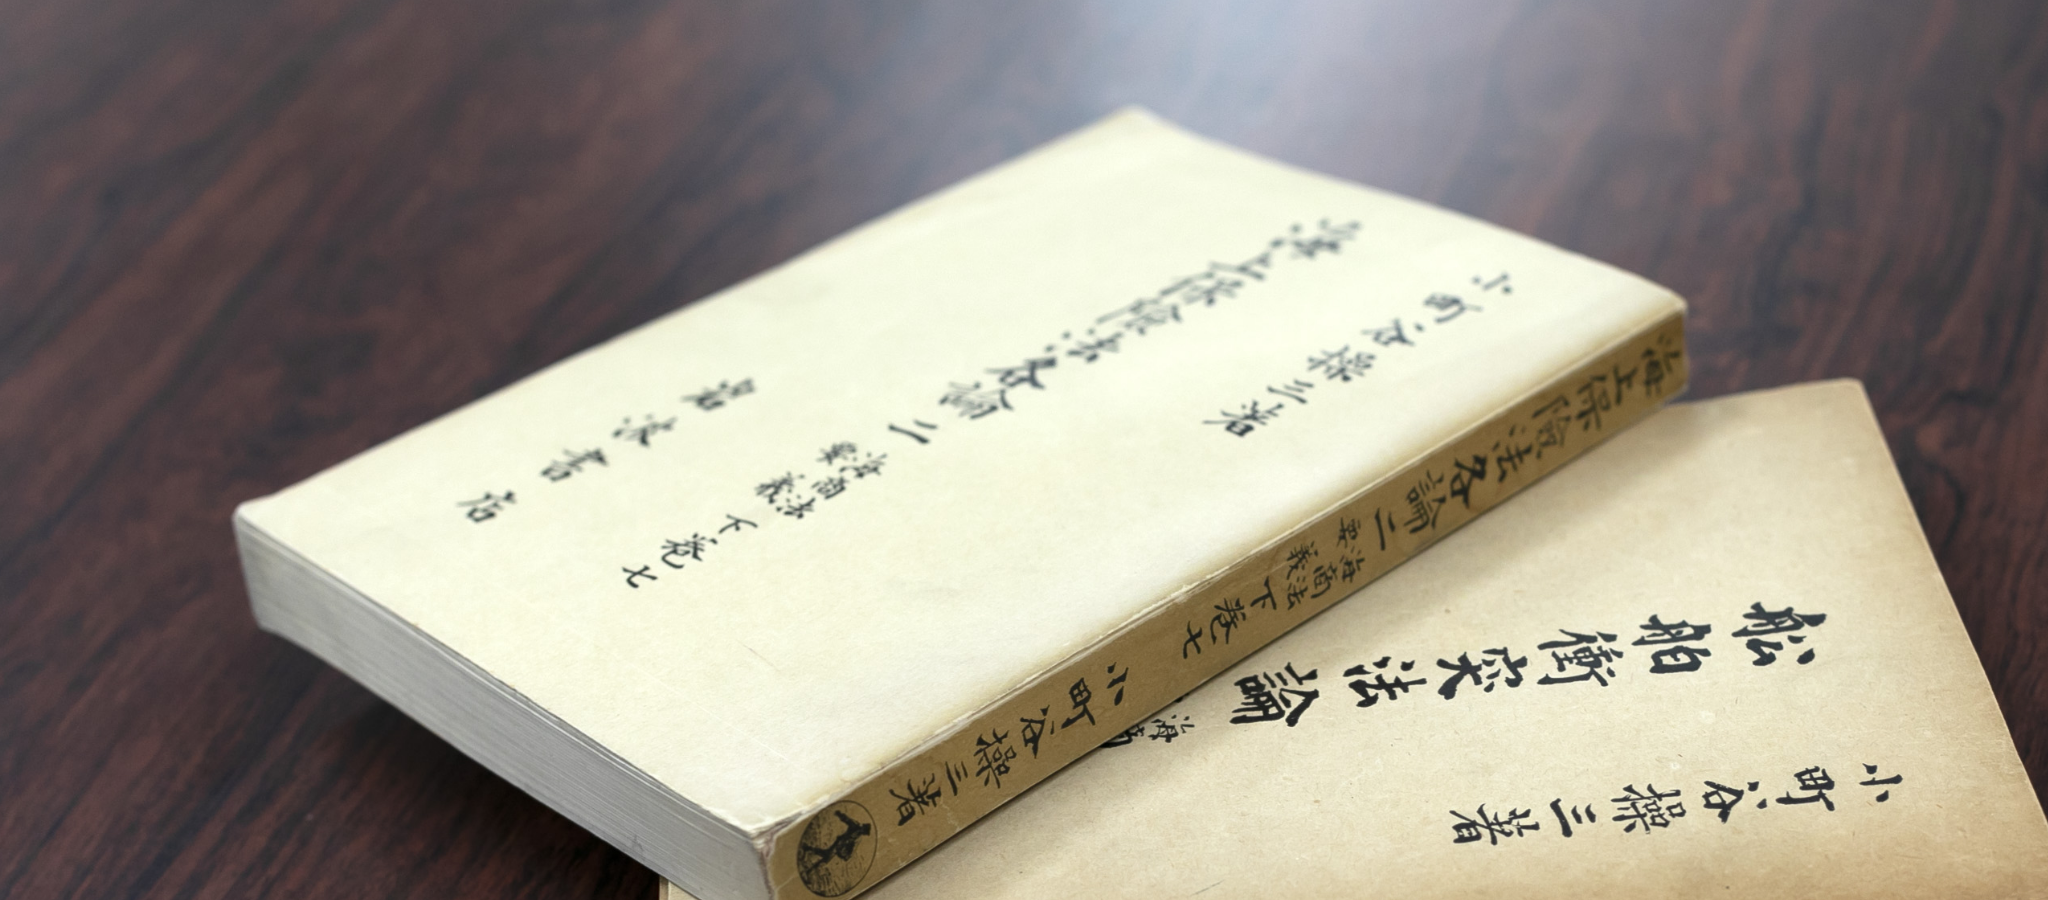 小町谷操三著
海上保險法各論二
海商法要義下巻七
岩波書店
海上保險法各論二
海商法要義下巻七
小町谷操三著
船舶衝突法論
海商
小町谷操三著